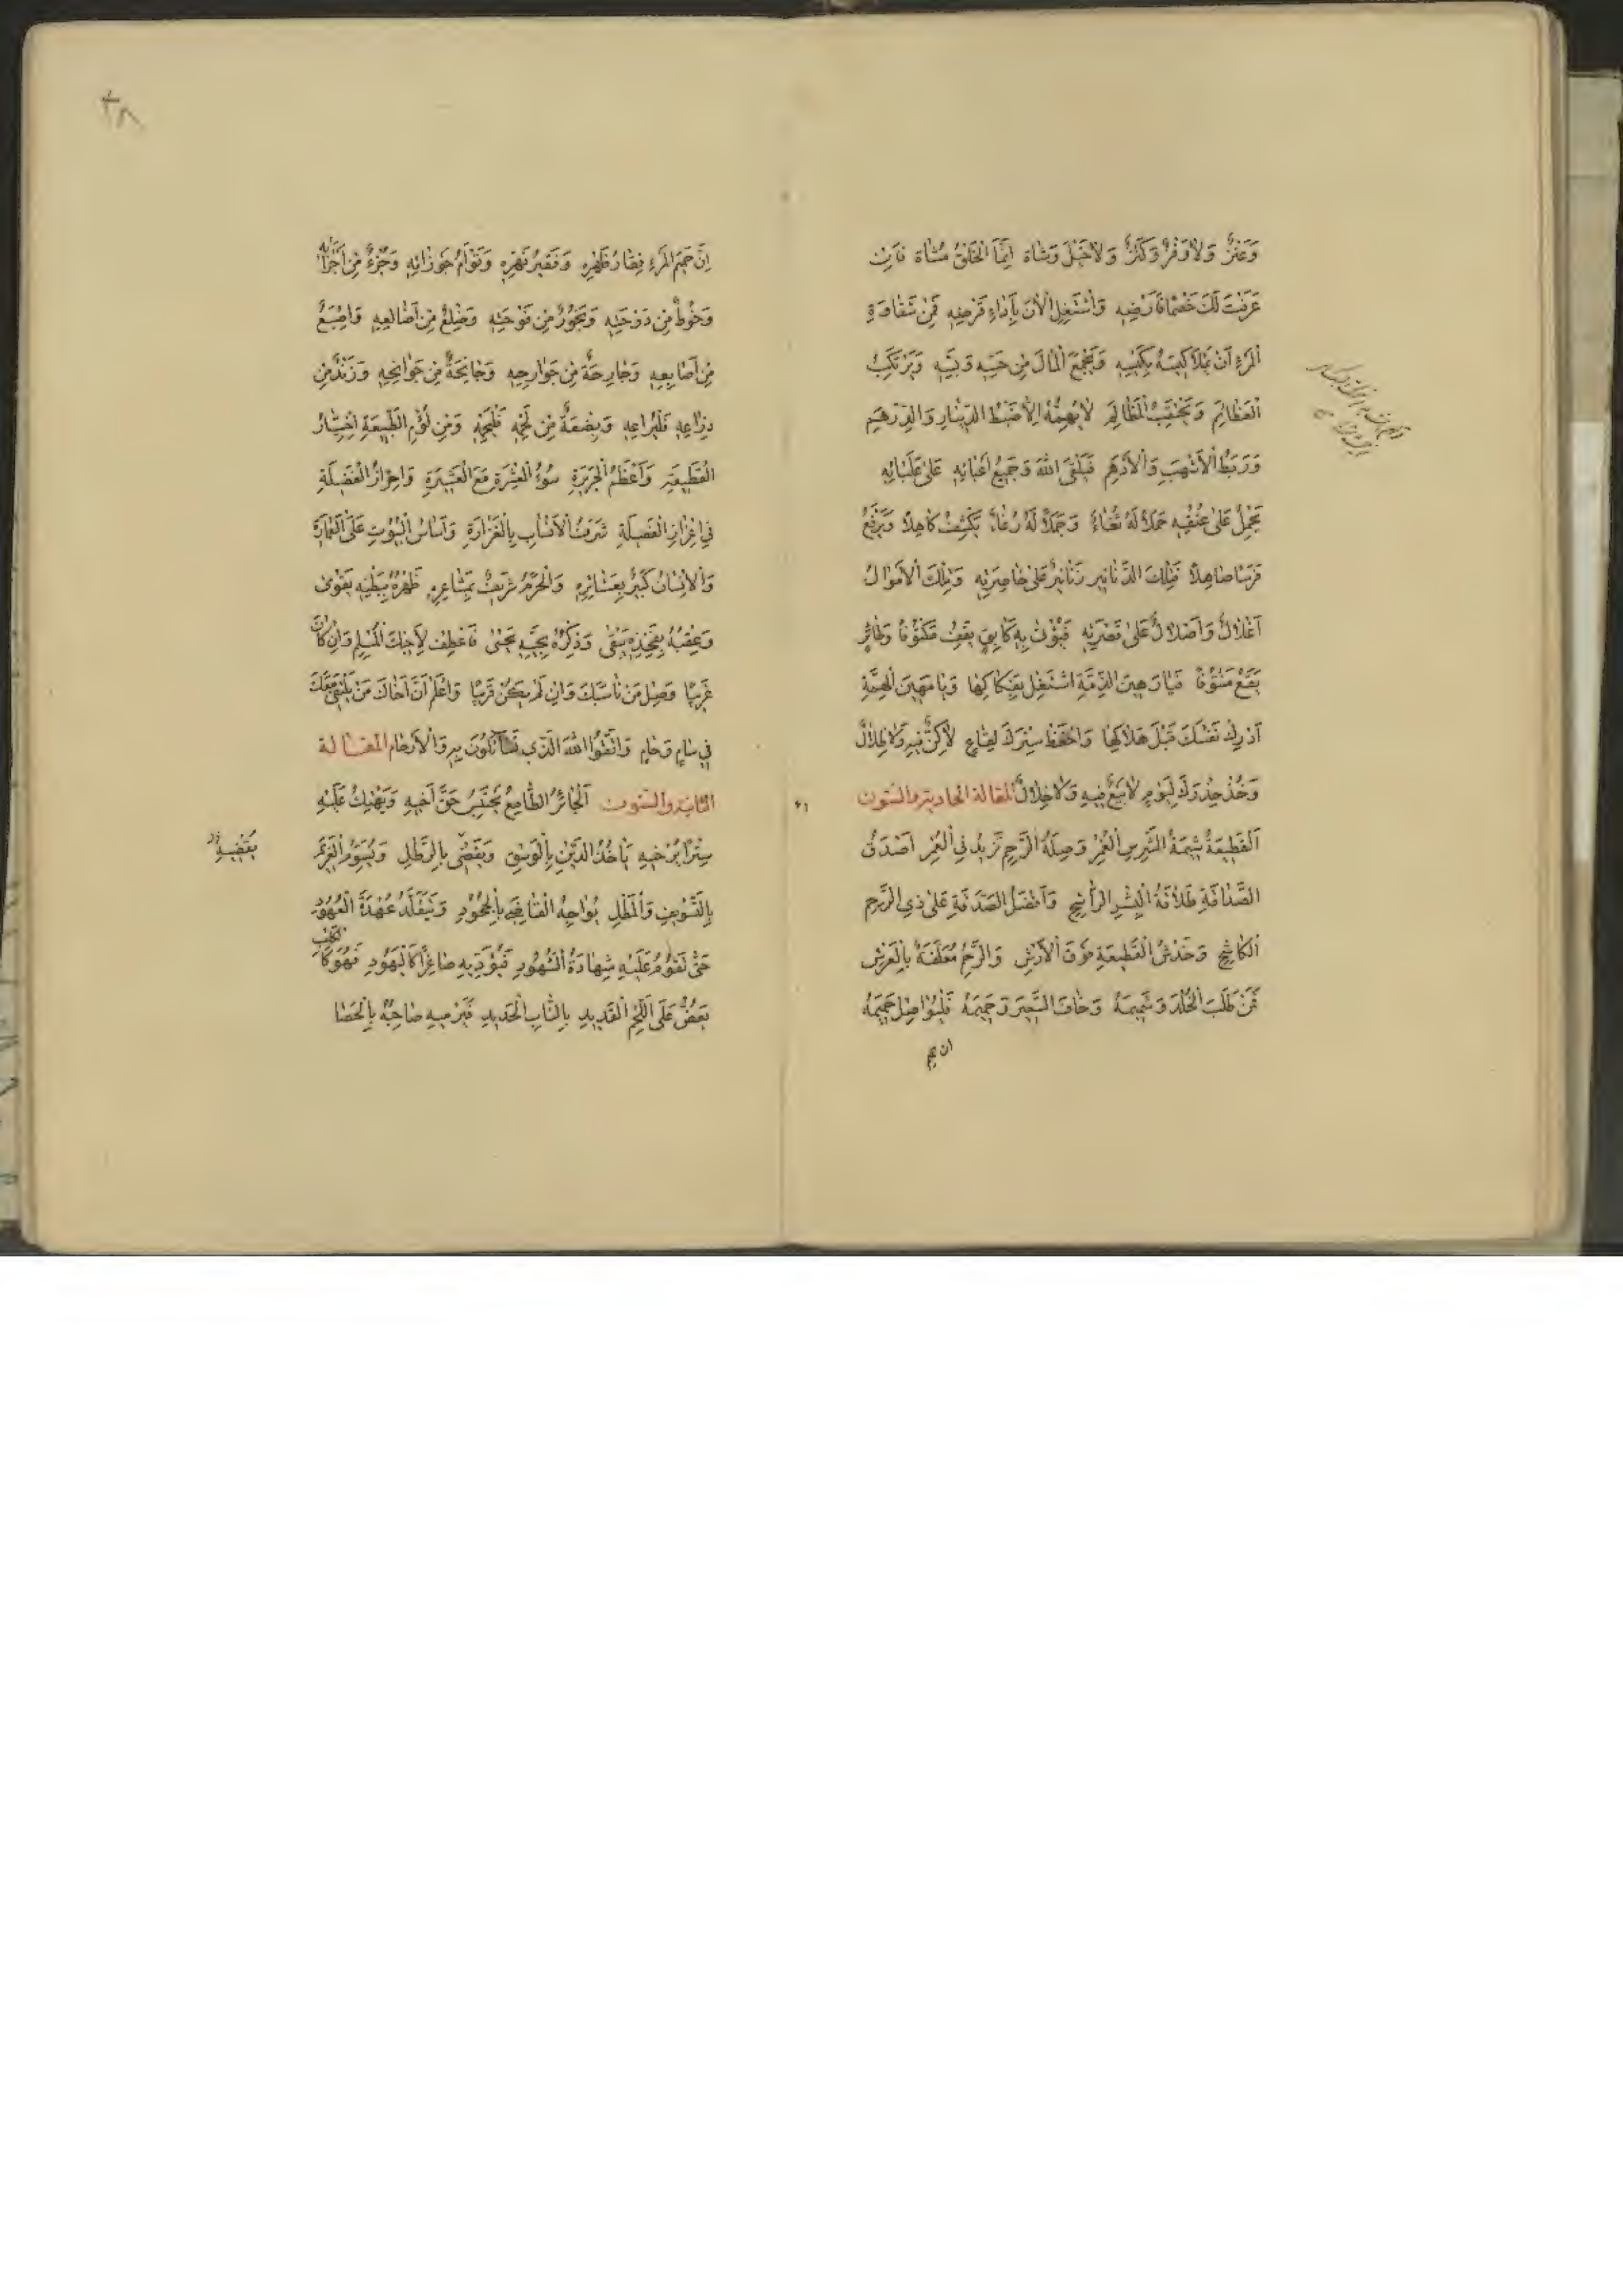 وَعَنْزٌ وَلَا وَفْرٌ وَكَنْزٌ وَلَا جَبَلَ وَشَاة اِنَّمَا الْخَلْقُ مُشَاة فَاِنْ
عَرَفْتَ لَكَ خَصْمًا فَارْضِهِ وَاشْتَغِلِ الْآنَ بِاَدَاءِ قَرْضِهِ فَمِنْ شَقَاوَةِ
الْمَرْءِ اَنْ يَمْلَأَ كِيسَهُ بِكَيْسِهِ وَيَجْمَعَ الْمَالَ مِنْ حَسِّهِ وَبَسِّهِ وَيَرْتَكِبُ
الْعَظَائِمَ وَيَحْتَقِبُ الْمَظَالِمَ لَا يُهِمُّهُ اِلَّا ضَبْطُ الدِّينَارِ وَالدِّرْهَمِ
وَرَبْطُ الْاَشْهَبِ وَالْاَدْهَمِ فَيَلْقَى اللهَ وَجَمِيعُ اَعْبَائِهِ عَلَى عِلْبَائِهِ
يَحْمِلُ عَلَى عُنُقِهِ حَمَلًا لَهُ ثُغَاءٌ وَجَمَلًا لَهُ رُغَاءٌ يَكْشِفُ كَاهِلًا وَيَرْفَعُ
فَرَسًا صَاهِلًا فَتِلْكَ الدَّنَانِيرُ زَنَانِيرُ عَلَى خَاصِرَتِهِ وَتِلْكَ الْاَمْوَالُ
اَغْلَالٌ وَاَصْلَالٌ عَلَى قَصَرَتِهِ فَيُؤْتَ بِهِ كَآبِقٍ يَقِفُ مَكْتُوفًا وَطَائِرٍ
يَقَعُ مَنْتُوفًا فَيَا رَهِينَ الذِّمَّةِ اشْتَغِلْ بِفِكَاكِهَا وَيَا مَهِينَ الْهِمَّةِ
اَدْرِكْ نَفْسَكَ قَبْلَ هَلَاكِهَا وَاحْفَظْ سِتْرَكَ لِقَاعٍ لَا كِنٌّ فِيهِ وَلَا ظِلَالٌ
وَخُذْ حِذْرَكَ لِيَوْمٍ لَا بَيْعٌ فِيهِ وَلَا خِلَالٌ المقالة الحادية والستون
اَلْقَطِيعَةُ شِيمَةُ الشَّرِسِ الْغُمْرِ وَصِلَةُ الرَّحِمِ تَزِيدُ فِي الْعُمْرِ اَصْدَقُ
الصَّدَاقَةِ طَلَاقَةُ الْبِشْرِ الرَّاشِحِ وَاَفْضَلُ الصَّدَقَةِ عَلَى ذِي الرَّحِمِ
الْكَاشِحِ وَخَدْشُ الْقَطِيعَةِ فَوْقَ الْاَرْشِ وَالرَّحِمُ مُعَلَّقَةٌ بِالْعَرْشِ
فَمَنْ طَلَبَ الْخُلْدَ وَشَمِيمَهُ وَخَافَ السَّعِيرَ وَحَمِيمَهُ فَلْيُوَاصِلْ حَمِيمَهُ
٣٨
اِنَّ حَمِيمَ الْمَرْءِ فِقَارُ ظَهْرِهِ وَفَقِيرُ نَهْرِهِ وَتَوْاَمُ جَوْزَائِهِ وَجُزْءٌ مِنْ اَجْزَائِهِ
وَخُوطٌ مِنْ دَوْحَتِهِ وَضِلْعٌ مِنْ اَضَالِعِهِ وَاِصْبَعٌ
مِنْ اَصَابِعِهِ وَجَارِحَةٌ مِنْ جَوَارِحِهِ وَجَانِحَةٌ مِنْ جَوَانِحِهِ وَزَنْدٌ مِنْ
ذِرَاعِهِ فَلْيُرَاعِهِ وَبِضْعَةٌ مِنْ لَحْمِهِ فَلْيَحْمِهِ وَمِنْ لُؤْمِ الطَّبِيعَةِ اخْتِيَارُ
الْقَطِيعَةِ وَاَعْظَمُ الْجَرِيرَةِ سُوءُ الْعِشْرَةِ مَعَ الْعَشِيرَةِ وَاِحْرَازُ الْفَضِيلَةِ
فِي اِعْزَازِ الْفَصِيلَةِ شَرَفُ الْاَنْسَابِ بِالْغَزَارَةِ وَاَسَاسُ الْبُيُوتِ عَلَى
وَالْاِنْسَانُ كَبِيرٌ بِعَشَائِرِهِ وَالْحَرَمُ شَرِيفٌ بِمَشَاعِرِهِ ظَهْرُهُ بِبَطْنِهِ يَقْوَى
وَعَقِبُهُ بِفَخِذِهِ يَبْقَى وَذِكْرُهُ بِحَيِّهِ يَحْيَى فَاعْطِفْ لِاَخِيكَ الْمُسْلِمِ وَاِنْ كَانَ
غَرِيبًا وَصِلْ مَنْ نَاسَبَكَ وَاِنْ لَمْ يَكُنْ قَرِيبًا وَاعْلَمْ اَنَّ اَخَاكَ مَنْ يَلْتَقِي مَعَكَ
فِي سَامٍ وَحَامٍ وَاتَّقُوا اللهَ الَّذِي تَسَاءَلُونَ بِهِ وَالْاَرْحَام المقالة
الثانية والستون اَلْجَائِرُ الطَّامِعُ حَقَّ اَخِيهِ وَيَهْتِكُ عَلَيْهِ
سِتْرًا يُرْخِيهِ يَاْخُذُ الدَّيْنَ بِالْوَسْقِ وَيَقْضِي بِالرَّطْلِ وَيُسَوِّمُ الْغَرِيمَ
بِالتَّسْوِيفِ وَالْمَطْلِ يُوَاجِهُ الْقَاضِيَ بِالْجُحُودِ وَيَتَقَلَّدُ عُهْدَةَ الْعُهُودِ
حَتَّى تَقُومَ عَلَيْهِ شَهَادَةُ الشُّهُودِ فَيُؤَدِّيهِ صَاغِرًا كَالْيَهُودِ فَهُوَ كَالْكَلْبِ
يَعَضُّ عَلَى اللَّحْمِ الْقَدِيدِ بِالنَّابِ الْحَدِيدِ فَيَرْمِيهِ صَاحِبُهُ بِالْحَصَا